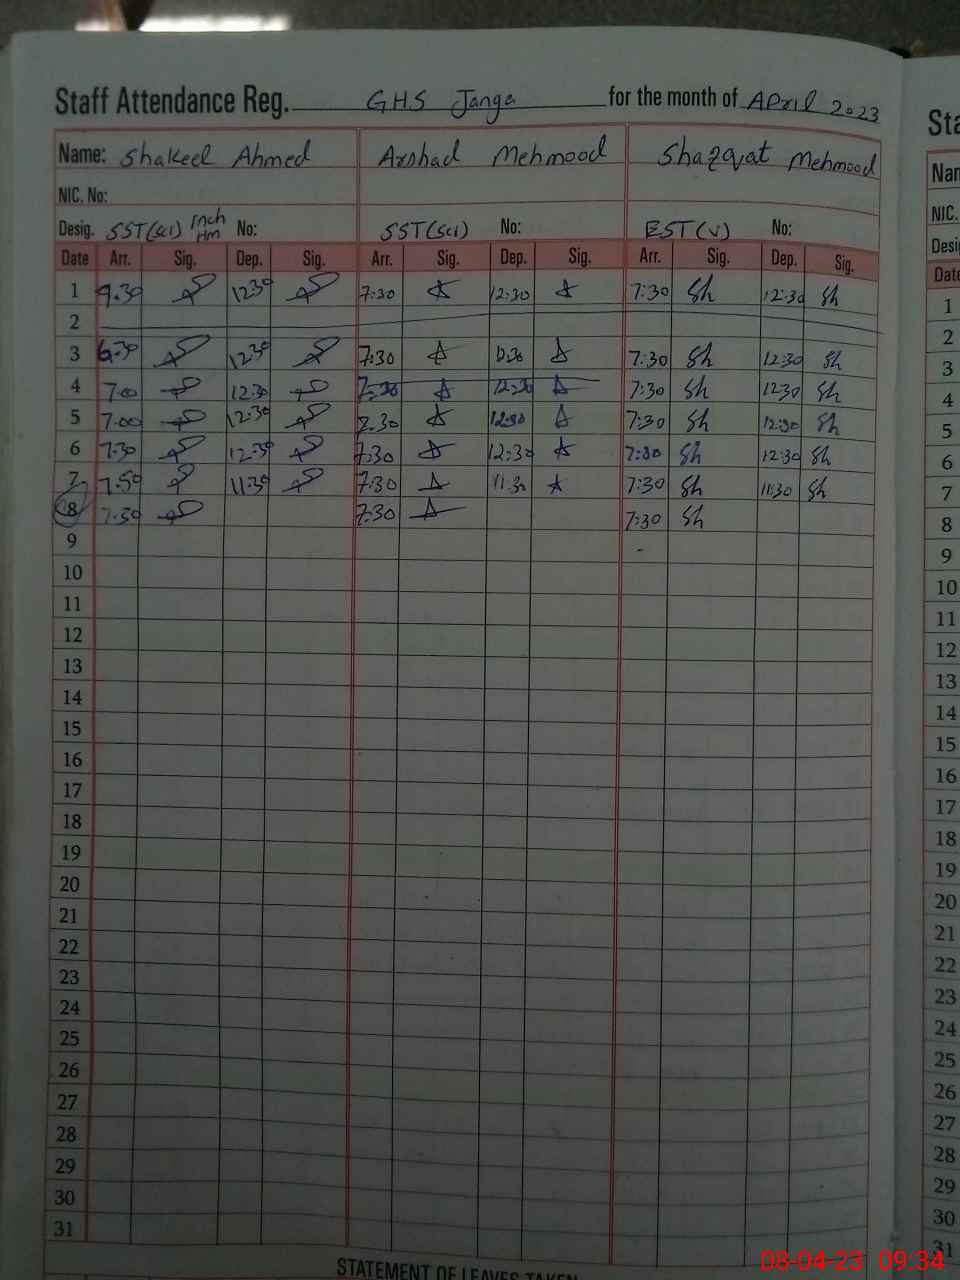 Staff Attendance Reg. GHS Janga for the month of April 2023
Name: Shakeel Ahmed Arshad Mehmood Shazqat Mehmood
NIC. No:
Desig. SST(Sci) Inch Hm No: SST(Sci) No: EST(V) No:
Date Arr. Sig. Dep. Sig. Arr. Sig. Dep. Sig. Arr. Sig. Dep. Sig.
1 9.30 12:30 7:30 12:30 7:30 Sh 12:30 Sh
2
3 12:30 7:30 7:30 Sh 12:30 Sh
4 7.00 12:30 12:30 7:30 Sh 12:30 Sh
5 7.00 12:30 12:30 7:30 Sh 12:30 Sh
6 7.30 12:30 7:30 12:30 7:30 Sh 12:30 Sh
7 11:30 7:30 11:30 7:30 Sh 11:30 Sh
8 7.30 7:30 7:30 Sh
9
10
11
12
13
14
15
16
17
18
19
20
21
22
23
24
25
26
27
28
29
30
31
STATEMENT OF LEAVES TAKEN
Sta
Nam
NIC.
Desi
Date
1
2
3
4
5
6
7
8
9
10
11
12
13
14
15
16
17
18
19
20
21
22
23
24
25
26
27
28
29
30
31
08-04-23 09:34